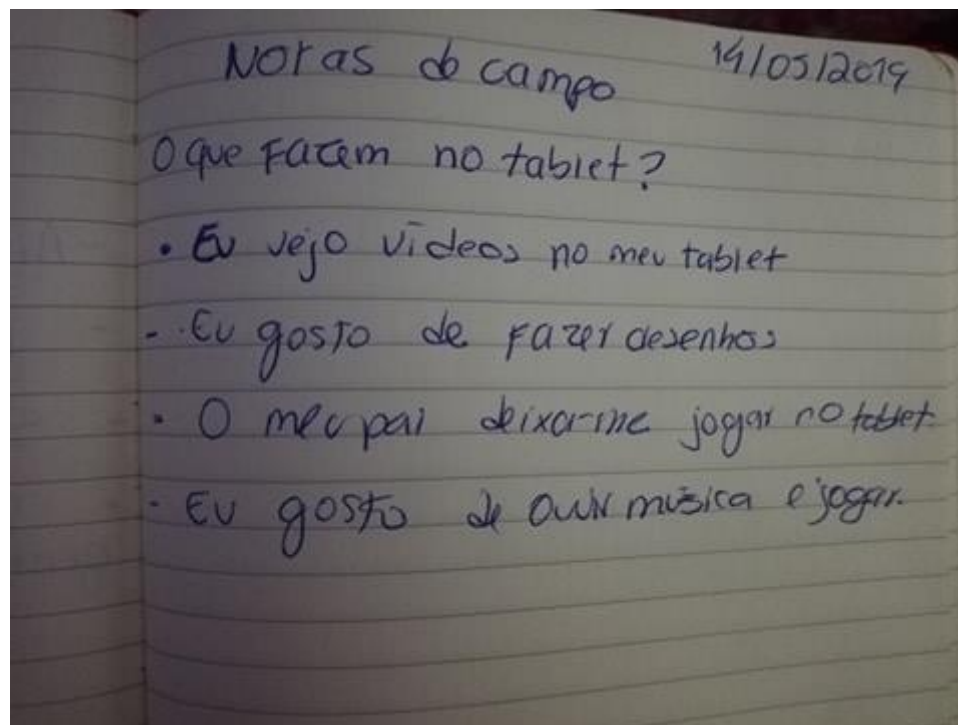 Notas do campo 14/05/2019
O que fazem no tablet?
• Eu vejo vídeos no meu tablet
- Eu gosto de fazer desenhos
• O meu pai deixa-me jogar no tablet.
- Eu gosto de ouvir música e jogar.